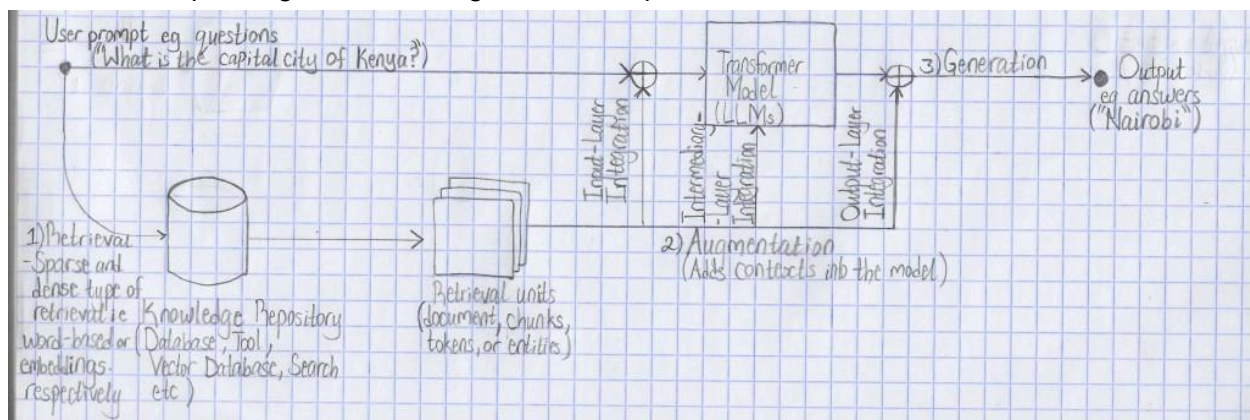 User prompt eg questions
("What is the capital city of Kenya?")
Transformer
Model
(LLMs)
3) Generation
Output
eg answers
("Nairobi")
Input-Layer
Integration
Intermediary
-Layer
Integration
Output-Layer
Integration
1) Retrieval
-Sparse and
dense type of
retrieval ie
word-based or
embeddings
respectively
Knowledge Repository
(Database, Tool,
Vector Database, Search
etc)
Retrieval units
(document, chunks,
tokens, or entities)
2) Augmentation
(Adds contexts into the model)